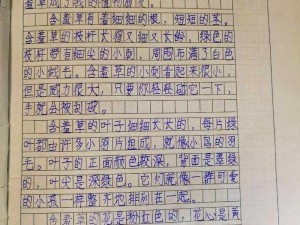 含羞草有着细细的根，短短的茎。
含羞草的枝杆大腿又细又长，绿色的
枝杆带有细尖的小刺，周围布满了白色
的小绒毛。含羞草的小刺看起来很小，
但是威力很大，只要你轻轻碰它一下，
手就会被刮破。
含羞草的叶子细细长长的，每片绿
叶都由许多小羽片组成，就像小鸟的羽
毛。叶子的正面颜色较深，背面是翠绿
的，叶尖是深绿色。它们就像一群可爱
的小孩一样整齐地排列在一起。
含羞草的花是粉红色的，花心是黄